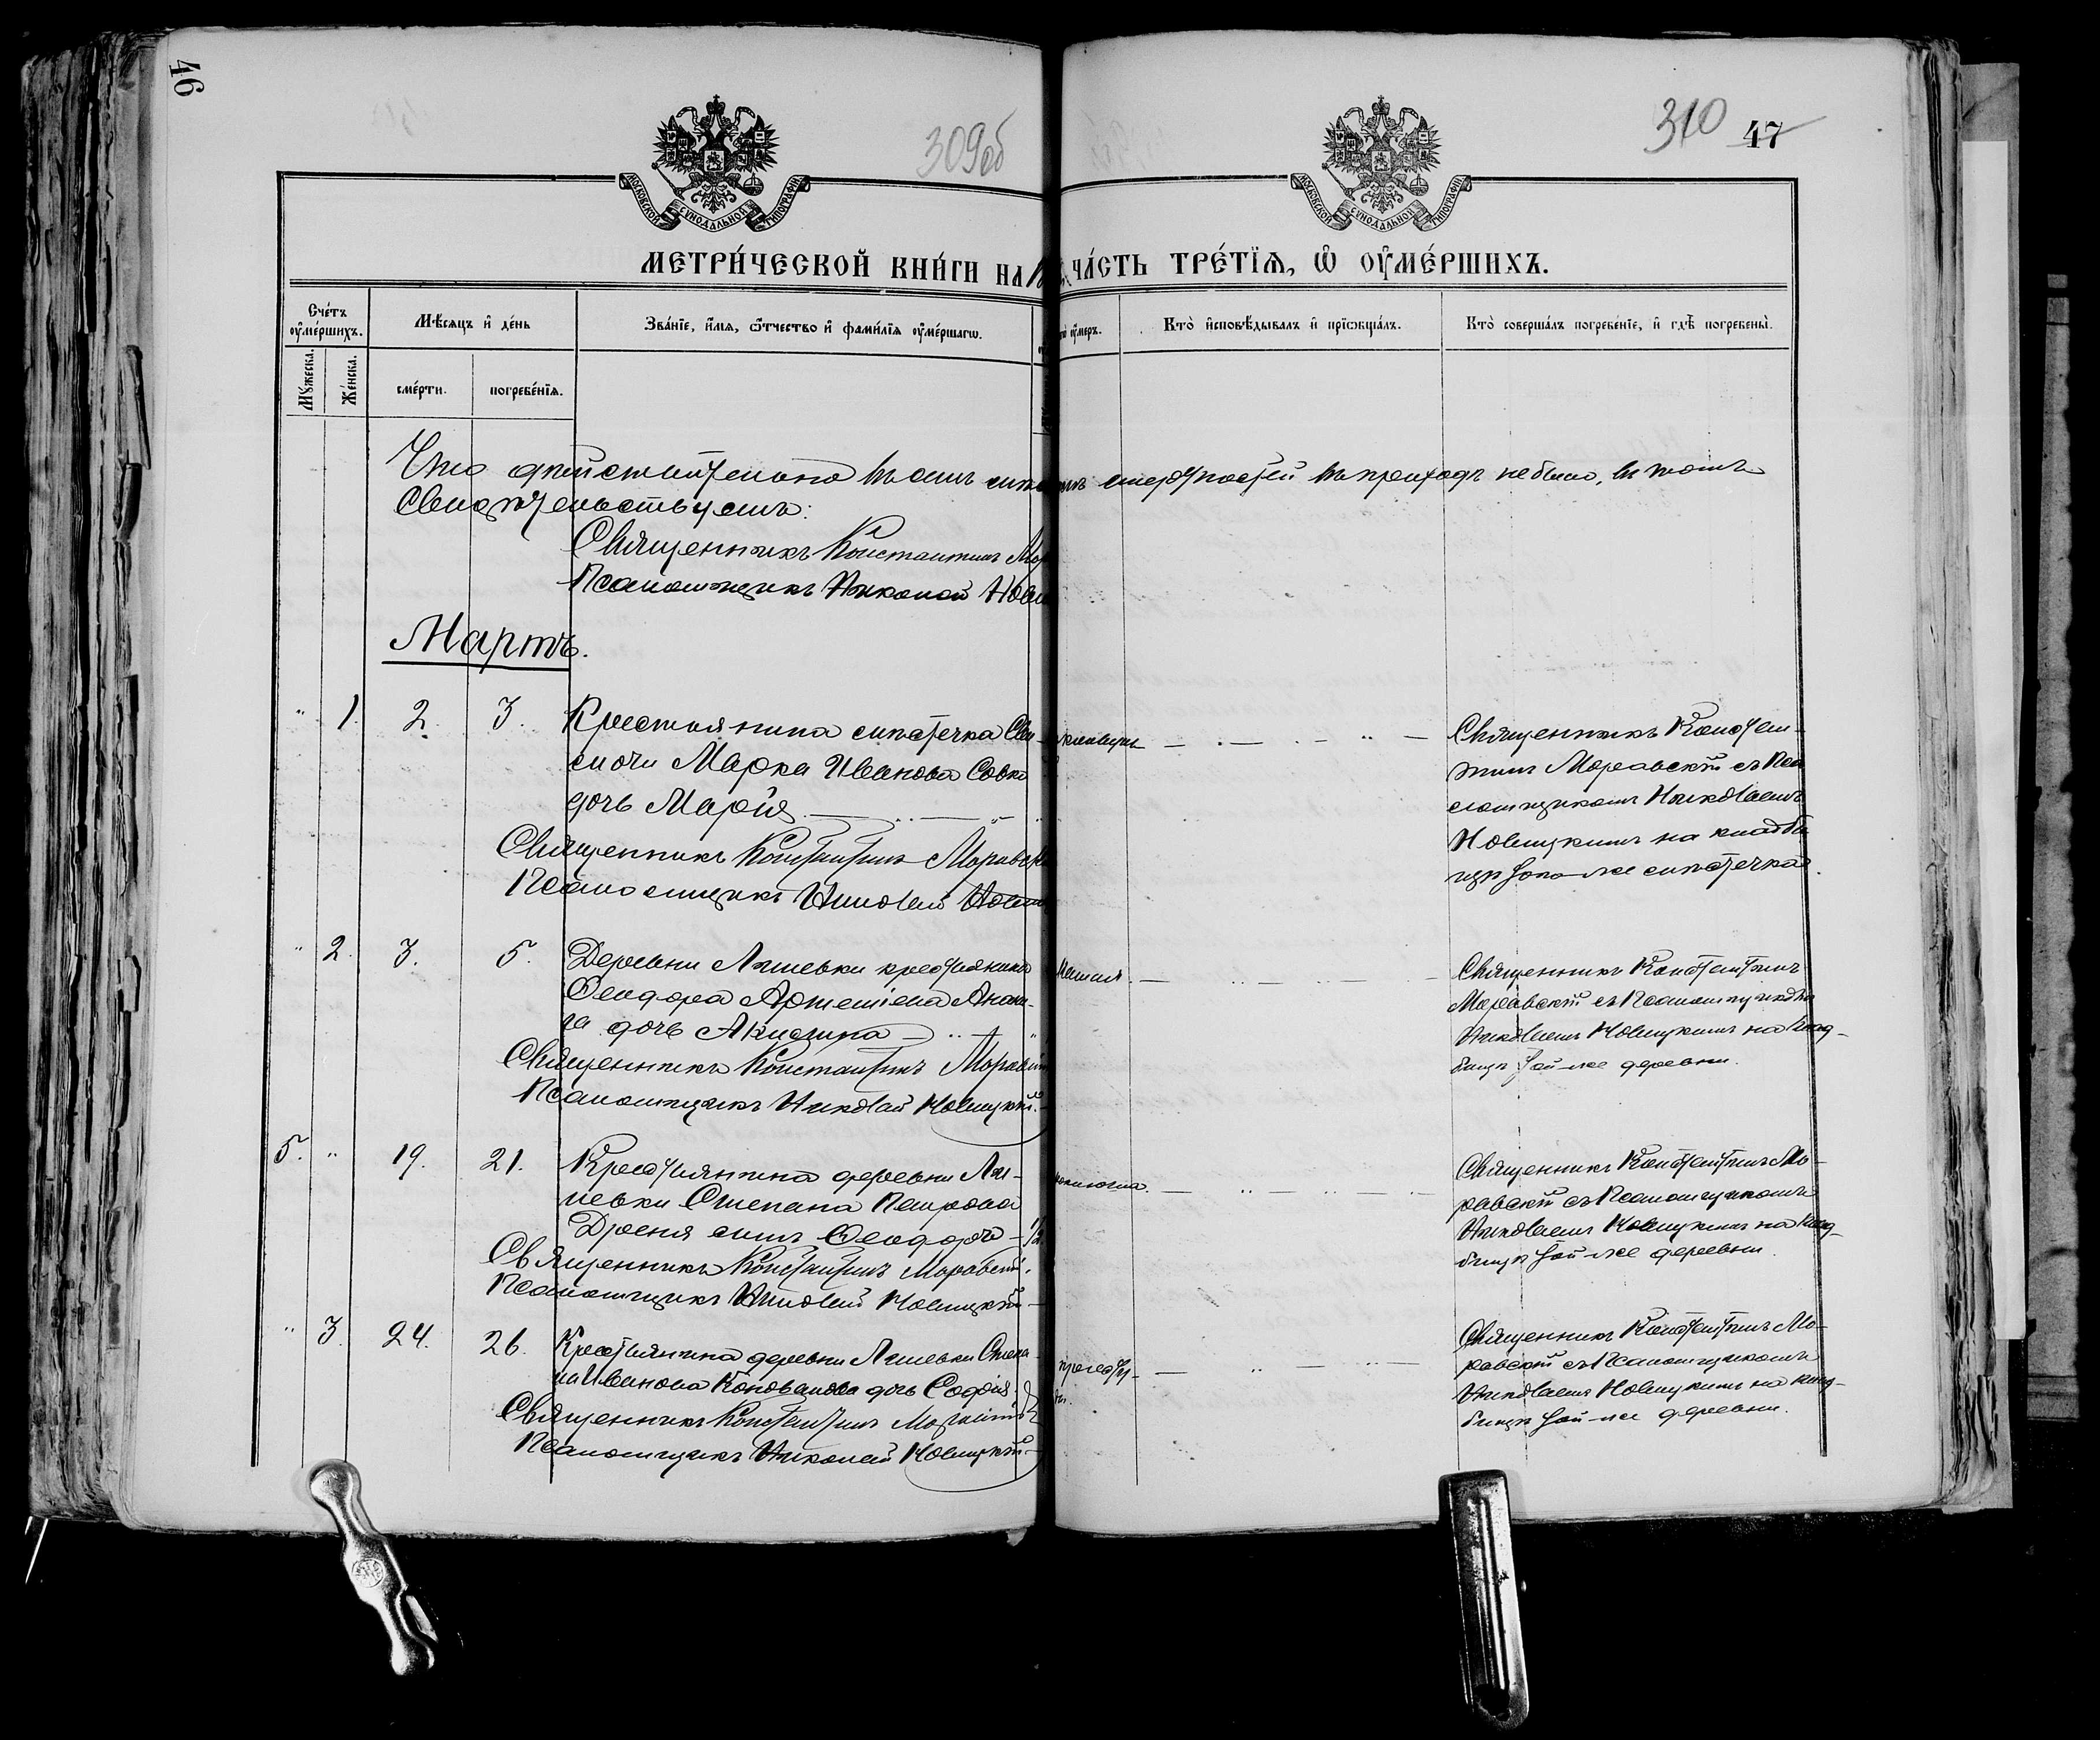 46
309об
310 47
МОСКОВСКОЙ СѴНОДАЛЬНОЙ ТИПОГРАФІИ
МОСКОВСКОЙ СѴНОДАЛЬНОЙ ТИПОГРАФІИ
МЕТРИ́ЧЕСКОЙ КНИ́ГИ НА 18
ЧА́СТЬ ТРЕ́ТЇѦ, Ѡ҆ ОУ҆МЕ́РШИХЪ.
Сче́тъ оу҆ме́ршихъ.
Мꙋ́жеска.
Же́нска.
Мѣ́сѧцъ и҆ де́нь
сме́рти.
погребе́нїѧ.
Зва́нїе, и҆́мѧ, ѻ҆́тчество и҆ фами́лїѧ оу҆ме́ршагѡ.
оу҆́меръ.
Кто̀ и҆сповѣ́дывалъ и҆ прїѡбща́лъ.
Кто̀ соверша́лъ погребе́нїе, и҆ гдѣ̀ погребены̀.
Что дѣйствительно въ семъ смертностей въ приходѣ не было, въ томъ
свидѣтельствуемъ:
Священникъ Константинъ Мор
Псаломщикъ Николай Нови
Мартъ.
" 1. 2. 3. Крестьянина мѣстечка
Марка Иванова Совка
дочь Марія
Священникъ Константинъ Моравск
Псаломщикъ Николай Нови
Священникъ Констан-
тинъ Моравскій съ Пса
ломщикомъ Николаемъ
Новицкимъ на кладби
щѣ того-же мѣстечка.
" 2. 3. 5. Деревни Ляшевки крестьянина
Ѳеодора Артеміева
дочь Акилина
Священникъ Константинъ Моравскій
Псаломщикъ Николай Новицкій.
Священникъ Константинъ
Моравскій съ Псаломщикомъ
Николаемъ Новицкимъ на клад-
бищѣ той-же деревни.
5. " 19. 21. Крестьянина деревни Ля-
шевки Степана Петрова
сынъ Ѳеодоръ 1/2
Священникъ Константинъ Моравскій.
Псаломщикъ Николай Новицкій
Священникъ Константинъ Мо-
равскій съ Псаломщикомъ
Николаемъ Новицкимъ на клад-
бищѣ той-же деревни.
" 3. 24. 26. Крестьянина деревни Ляшевки Степа-
на Иванова Коновалова дочь Софія
Священникъ Константинъ Моравскій
Псаломщикъ Николай Новицкій
простуды.
Священникъ Константинъ Мо-
равскій съ Псаломщикомъ
Николаемъ Новицкимъ на клад-
бищѣ той-же деревни.